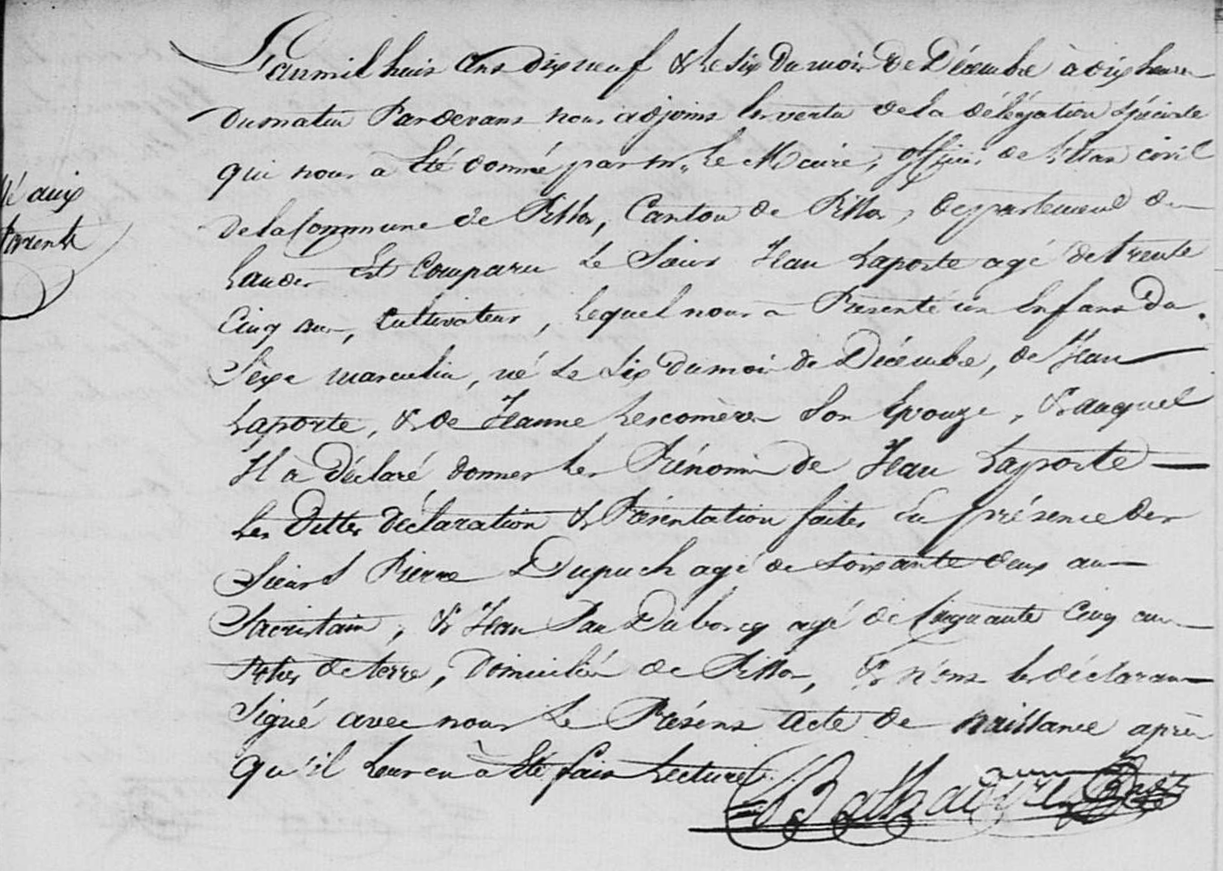 L'an mil huit cens dix neuf & le six du mois de Décembre à dix heures
du matin Pardevans nous adjoins En vertu de la délégation spéciale
qui nous a été donné par mr. Le Maire, officier de l'Etat civil
de la Commune de Pissos, Canton de Pissos, département des
Landes Est Comparu Le Sieur Jean Laporte agé de trente
Cinq ans, Cultivateur, Lequel nous a Présenté un Enfans du
Sèxe masculin, né Le Six du mois de Décembre, de Jean
Laporte, & de Jeanne Lescomères Son Epouze, & auquel
Il à déclaré donner Les Prénoms de Jean Laporte
Les dittes déclaration & Présentation faites En présence des
Sieurs Pierre Dupuch agé de soixante deux ans
Sacristain, & Jean Dubourg agé de Cinquante Cinq ans
Potier de terre, Domiciliés de Pissos, & n'ons les déclarans
Signé avec nous Le Présens acte de naissance après
qu'il Leur en à été fais Lecture